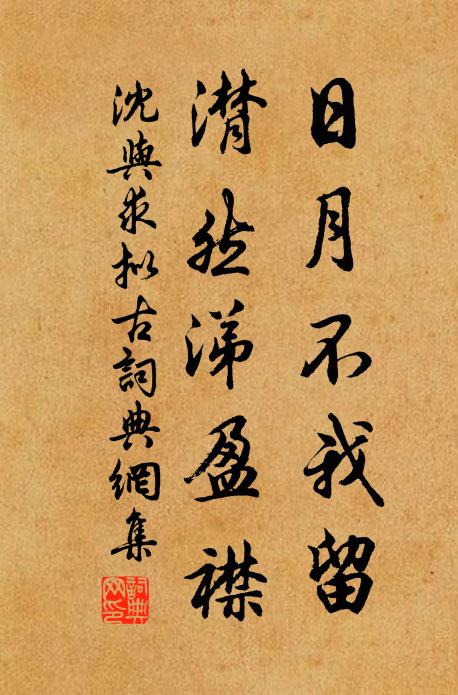 日月不我留
潸然涕盈襟
沈與求拟古詞典網集
詞典
網印